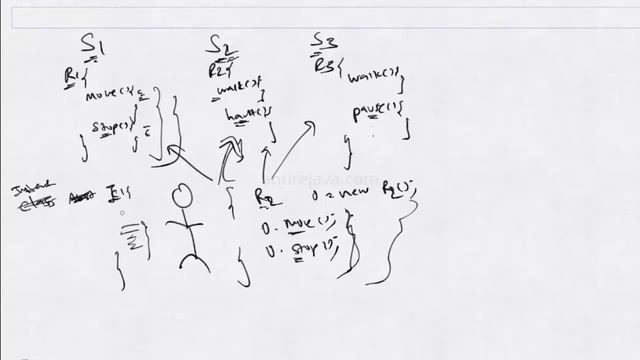 S1 S2 S3
R1{ R2{ R3{
move(){ walk(){} walk(){}
stop(){ } halt(){} pause(){}
}
entirejava.com
I1{ { R2 O = new R2();
O. move();
O. stop();
} }